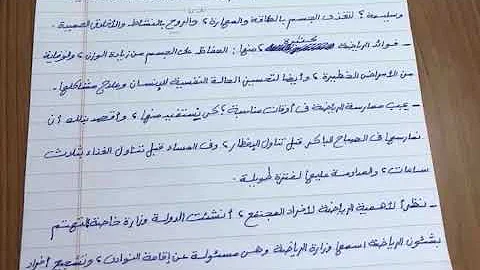 وسليمة ؟ لتغذى الجسم بالطاقة والمهارة ؟ والروح بالنشاط والأخلاق الحميدة .
- فوائد الرياضة كثيرة ؟ منها : الحفاظ على الجسم من زيادة الوزن ؟ والوقاية
من الأمراض الخطيرة ؟ وأيضا لتحسين الحالة النفسية للإنسان وعلاج مشاكلها .
- يجب ممارسة الرياضة فى أوقات مناسبة ؟ كى نستفيد منها ؟ وأقصد بذلك أن
نمارسها فى الصباح الباكر قبل تناول الإفطار ؟ وفى المساء قبل تناول الغذاء بثلاث
ساعات ؟ والمداومة عليها لفترة طويلة .
- نظراً لأهمية الرياضة لأفراد المجتمع ؟ أنشئت الدولة وزارة خاصة تهتم
بشئون الرياضة اسمها وزارة الرياضة وهى مسئولة عن إقامة النوادى ؟ وتشجيع أفراد